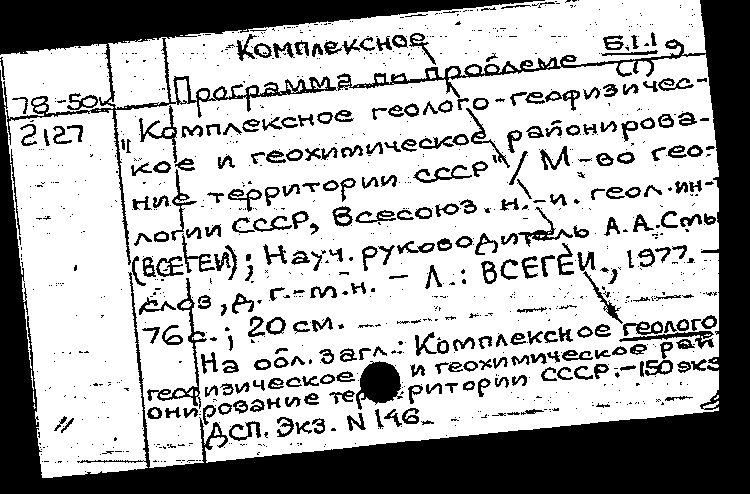 Комплексное
Программа по проблеме Б.I.1 д
(1)
78-50к
2127
"Комплексное геолого-геофизичес-
кое и геохимическое районирова-
ние территории СССР" / М-во гео-
логии СССР, Всесоюз. н.-и. геол. ин-т
(ВСЕГЕИ); Науч. руководитель А.А.Смы
слов, д.г.-м.н. – Л.: ВСЕГЕИ., 1977. –
76с.; 20см.
На обл. загл.: Комплексное геолого
геофизическое и геохимическое рай
онирование территории СССР. – 150 экз
ДСП. Экз. N 146.